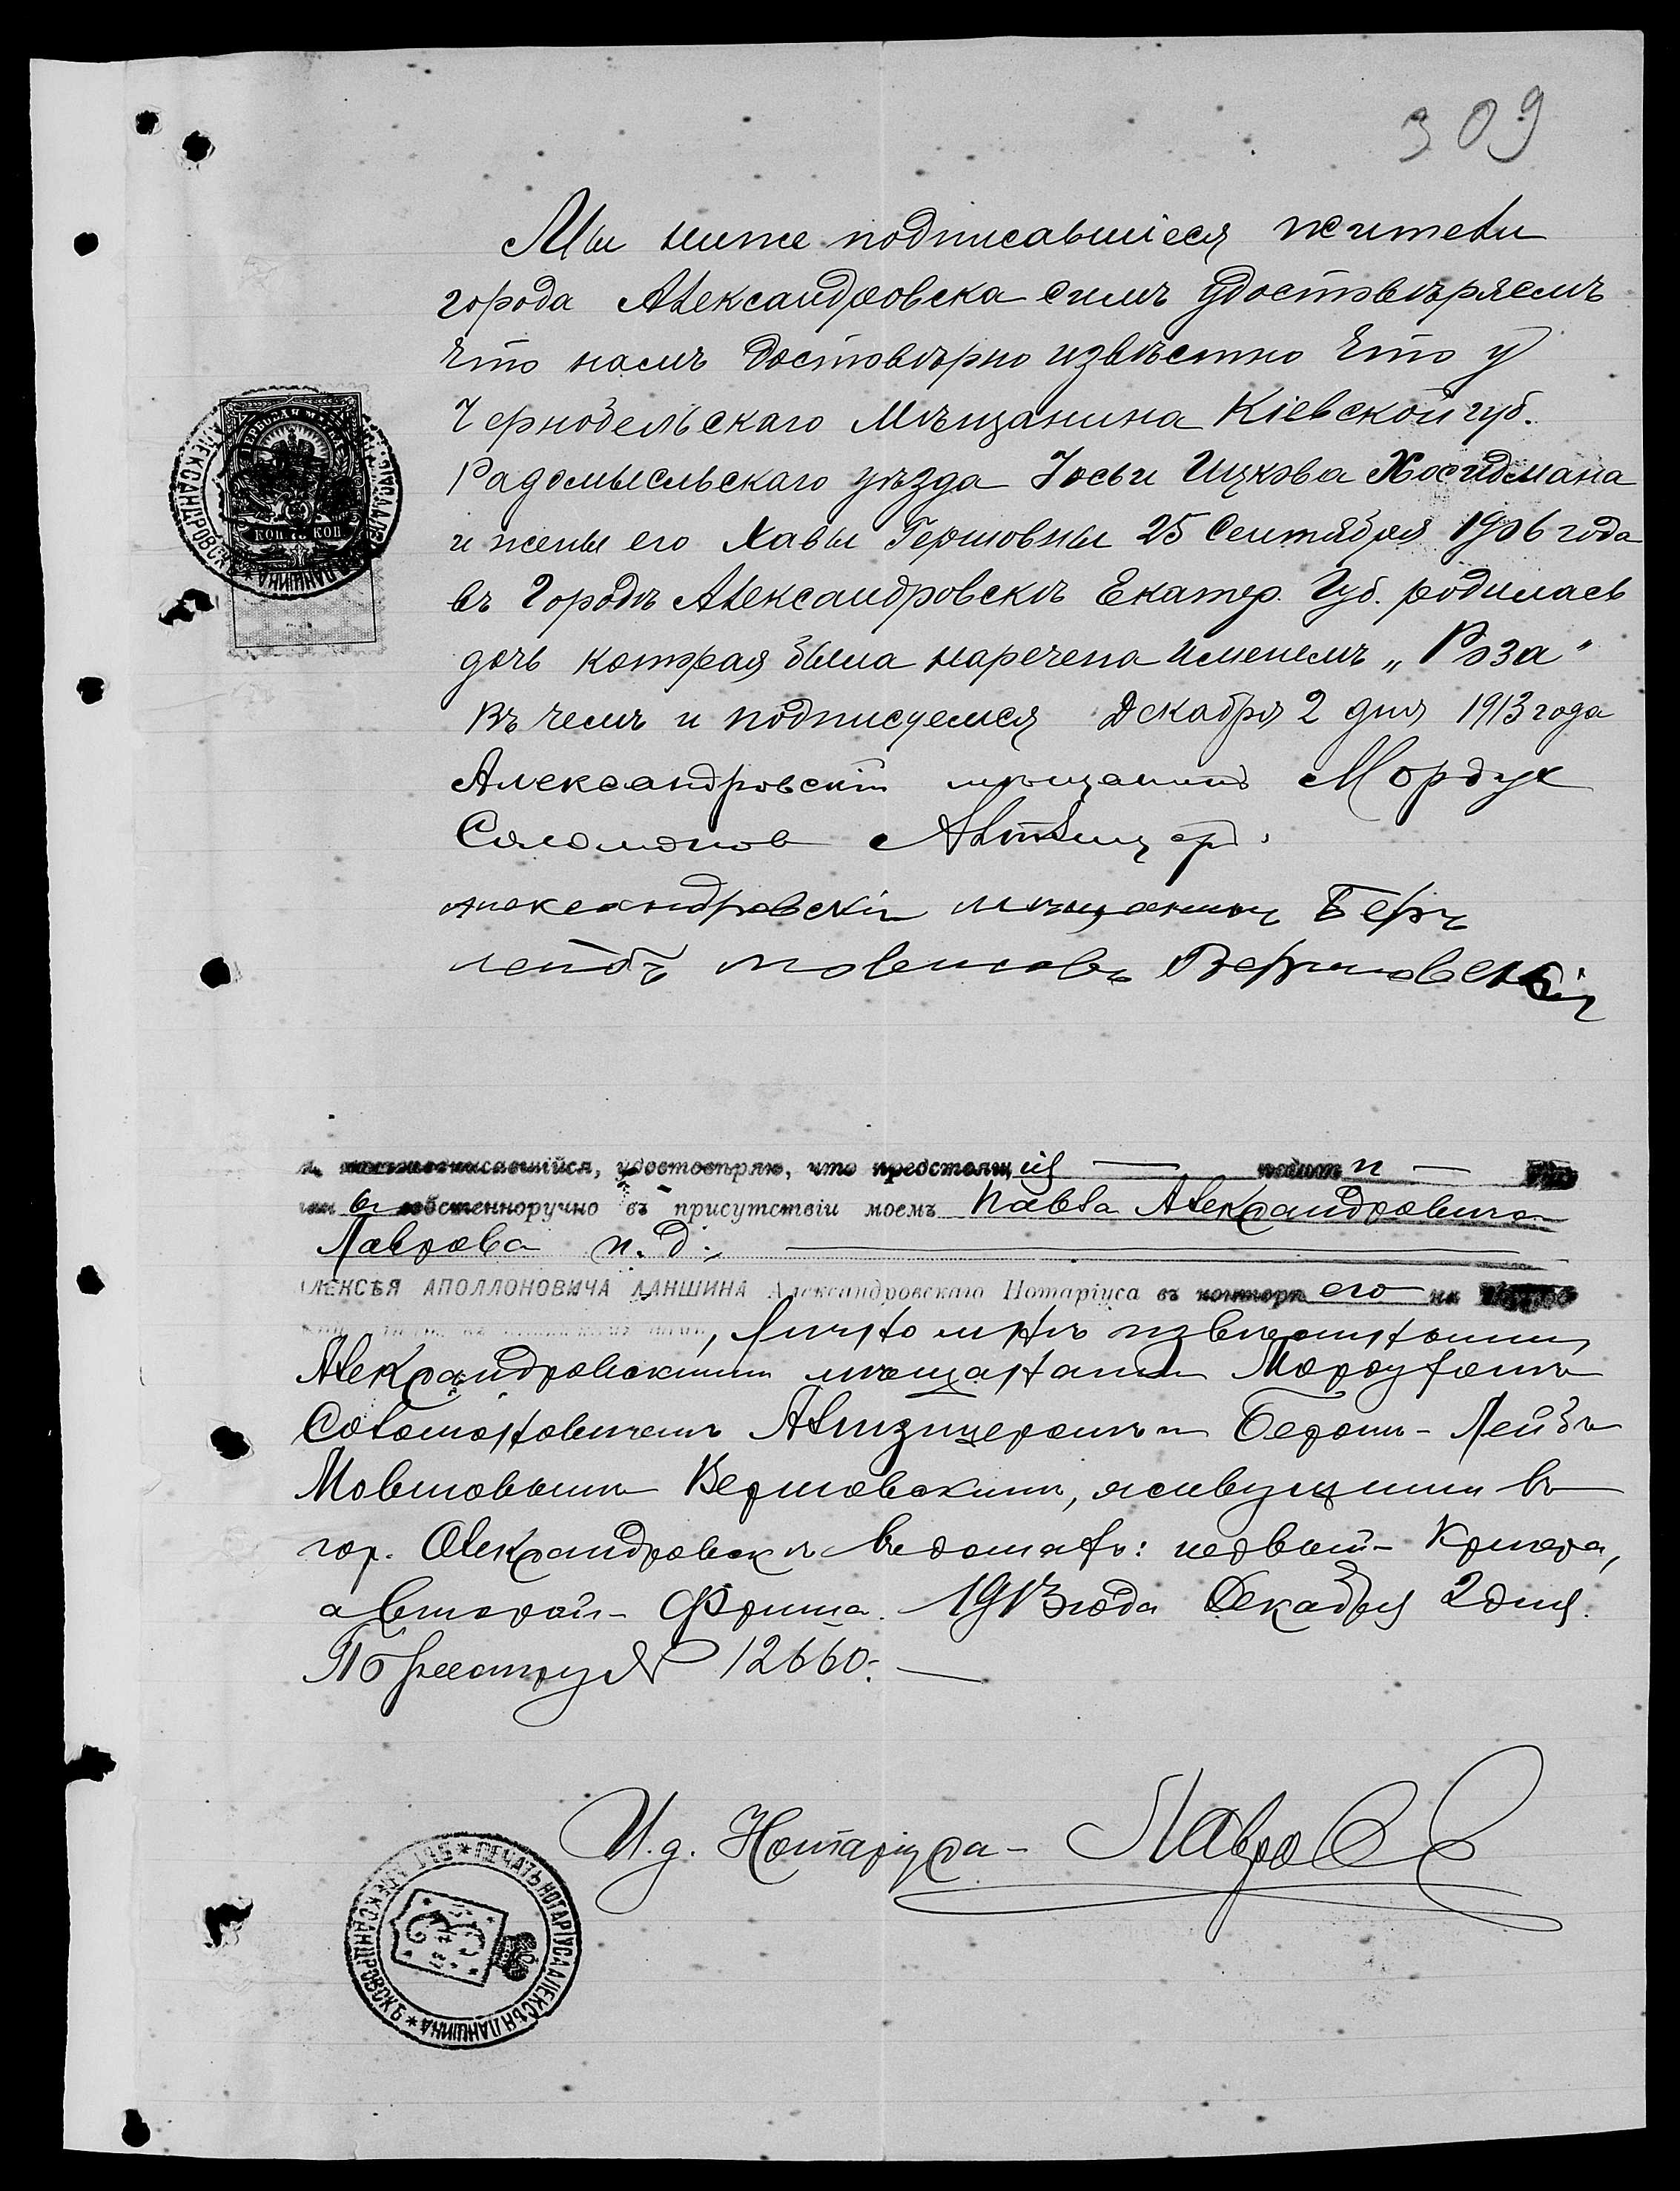 309
Мы ниже подписавшіеся жители
города Александровска симъ удостовѣряемъ
что намъ достовѣрно извѣстно что у
Чернобельскаго Мѣщанина Кіевской губ.
Радомысльскаго уѣзда Іосьи Ицкова Хосидмана
и жены его Хавы Гершовны 25 Сентября 1906 года
въ Городѣ Александровскѣ Екатер. Губ. родилась
дочь которая была наречена именемъ „Роза"
Въ чемъ и подписуемся Декабря 2 дня 1913 года
Александровскій мѣщанинъ Мордух
Соломонов Альтзицер.
Александровскій мѣщанинъ Беръ
Лейбъ Мовшовъ Вершовскій
ПЕРБОВАЯ МАРКА
75 КОП. 75
АЛЕКСАНДРОВСКЪ
удостовѣряю, что предстоящія подписи
собственноручно въ присутствіи моемъ Павла Александровича
Лаврова и. д.
АЛЕКСѢЯ АПОЛЛОНОВИЧА ЛАНШИНА Александровскаго Нотаріуса въ конторѣ его на
, лично мнѣ извѣстными,
Александровскими мѣщанами Мордухомъ
Соломоновичемъ Альтзицеромъ и Беромъ-Лейбъ
Мовшовымъ Вершовскимъ, живущими въ
гор. Александровскѣ въ домахъ: первый- Кригера,
а второй- Фриша. 1913 года Декабря 2 дня.
По реестру № 12660.
И. д. Нотаріуса- Лавровъ
ПЕЧАТЬ НОТАРІУСА АЛЕКСѢЯ ЛАНШИНА * АЛЕКСАНДРОВСКЪ